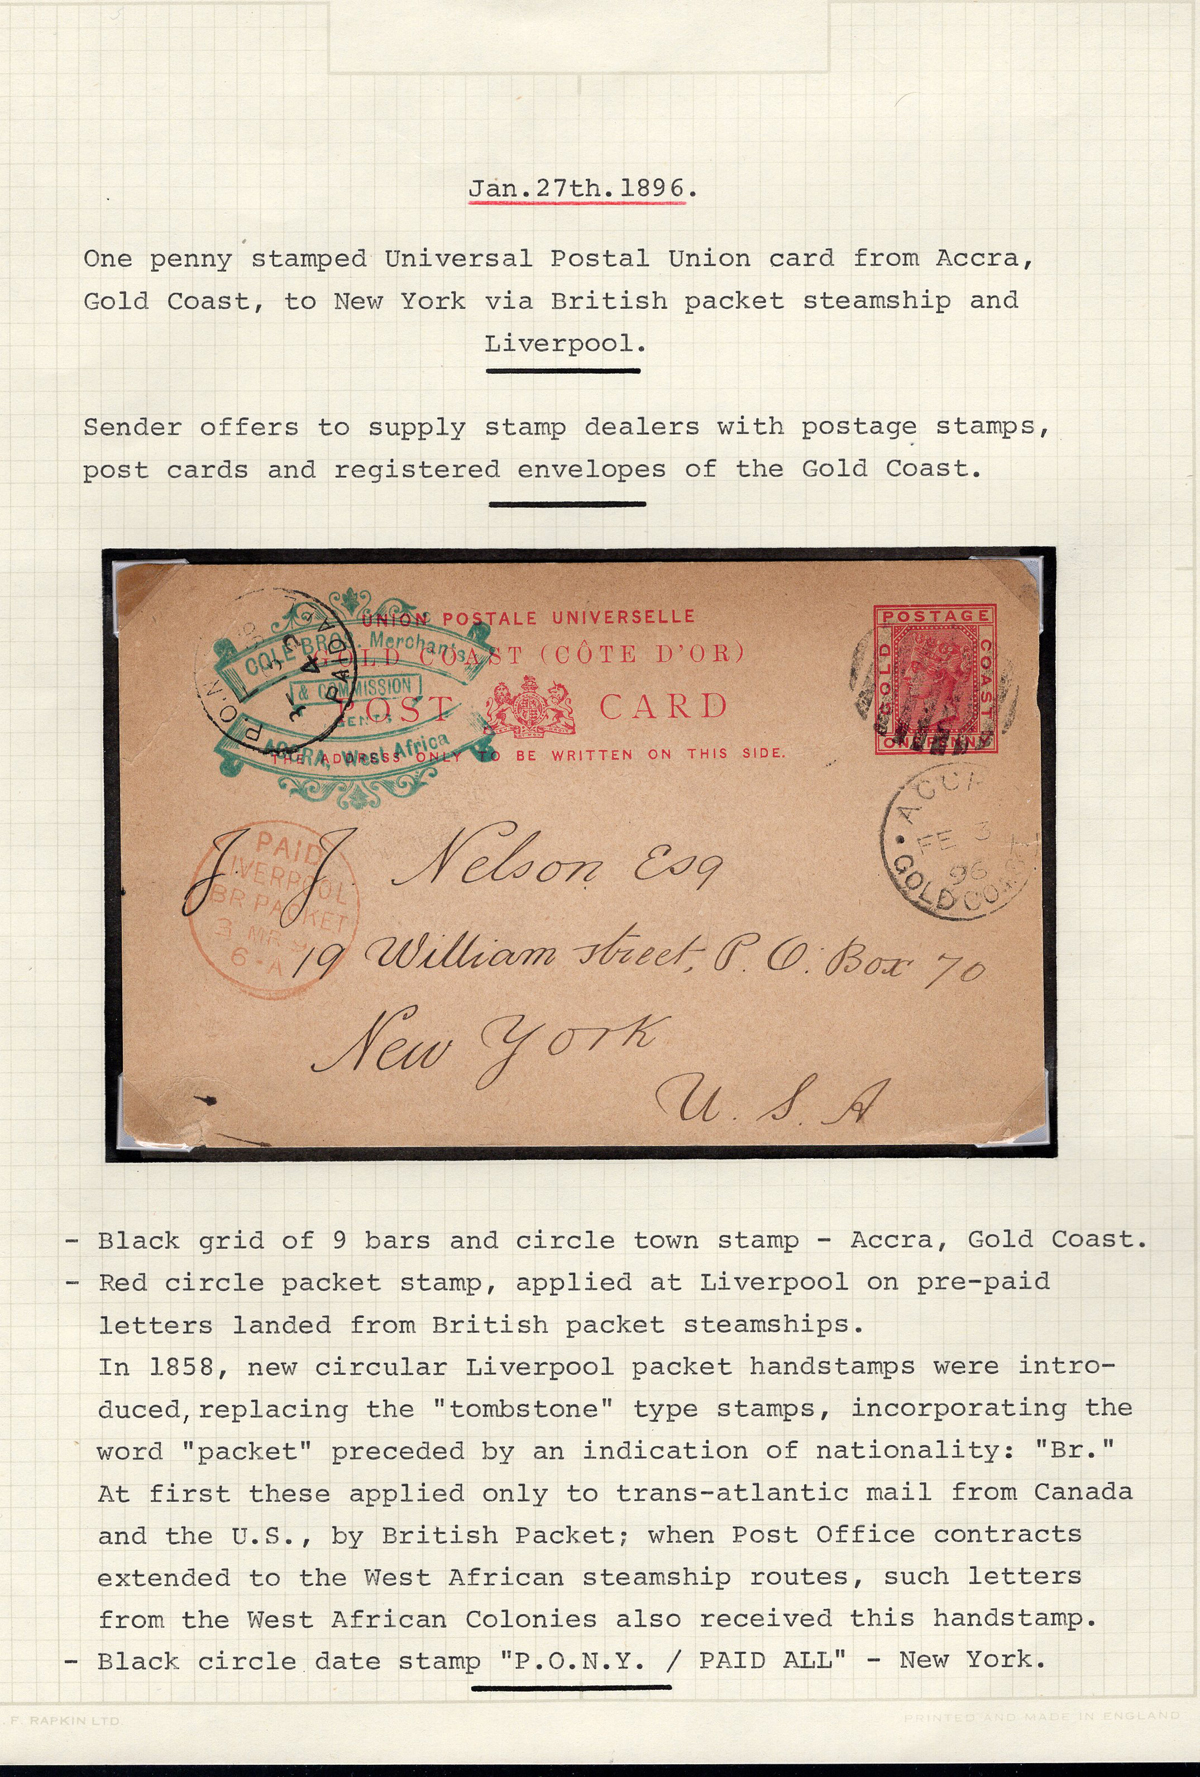 Jan.27th.1896.
One penny stamped Universal Postal Union card from Accra,
Gold Coast, to New York via British packet steamship and
Liverpool.
Sender offers to supply stamp dealers with postage stamps,
post cards and registered envelopes of the Gold Coast.
UNION POSTALE UNIVERSELLE
GOLD COAST (CÔTE D'OR)
POST CARD
THE ADDRESS ONLY TO BE WRITTEN ON THIS SIDE.
COLE BROS. Merchants
& COMMISSION
GENTS
ACCRA, West Africa
P.O.N.
PAID A
POSTAGE
GOLD COAST
ONE PENNY
ACCRA
FE 3
96
GOLD COAST
PAID
LIVERPOOL
BR PACKET
3 MR 9
6-A
J. J. Nelson Esq
19 William street, P. O. Box 70
New York
U. S. A
- Black grid of 9 bars and circle town stamp - Accra, Gold Coast.
- Red circle packet stamp, applied at Liverpool on pre-paid
letters landed from British packet steamships.
In 1858, new circular Liverpool packet handstamps were intro-
duced, replacing the "tombstone" type stamps, incorporating the
word "packet" preceded by an indication of nationality: "Br."
At first these applied only to trans-atlantic mail from Canada
and the U.S., by British Packet; when Post Office contracts
extended to the West African steamship routes, such letters
from the West African Colonies also received this handstamp.
- Black circle date stamp "P.O.N.Y. / PAID ALL" - New York.
. F. RAPKIN LTD.
PRINTED AND MADE IN ENGLAND